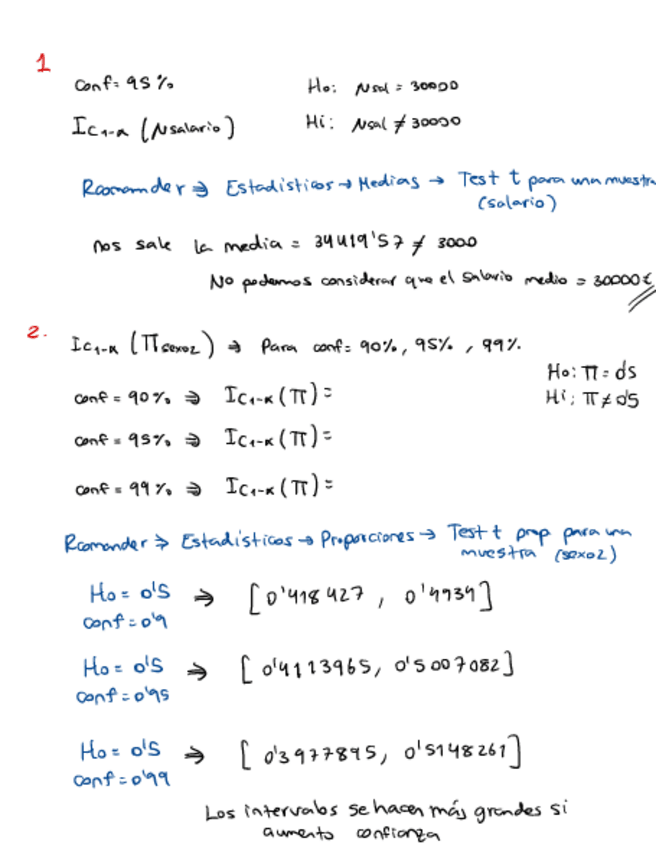 1
Conf= 95%
Ho: μsal = 30000
IC1-α (μsalario)
Hi: μsal ≠ 30000
Rcomander ⇒ Estadísticos → Medias → Test t para una muestra
(salario)
nos sale la media = 34419'57 ≠ 3000
No podemos considerar que el salario medio = 30000€
2.
IC1-α (πsexo2) ⇒ Para conf= 90%, 95%, 99%.
Ho: π = 0'5
Hi: π ≠ 0'5
conf = 90% ⇒ IC1-α (π) =
conf = 95% ⇒ IC1-α (π) =
conf = 99% ⇒ IC1-α (π) =
Rcomander ⇒ Estadísticos → Proporciones → Test t prop para una
muestra (sexo2)
Ho = 0'5 ⇒ [0'418427, 0'4939]
conf = 0'9
Ho = 0'5 ⇒ [0'4113965, 0'5007082]
conf = 0'95
Ho = 0'5 ⇒ [0'3977895, 0'5148261]
conf = 0'99
Los intervalos se hacen más grandes si
aumento confianza